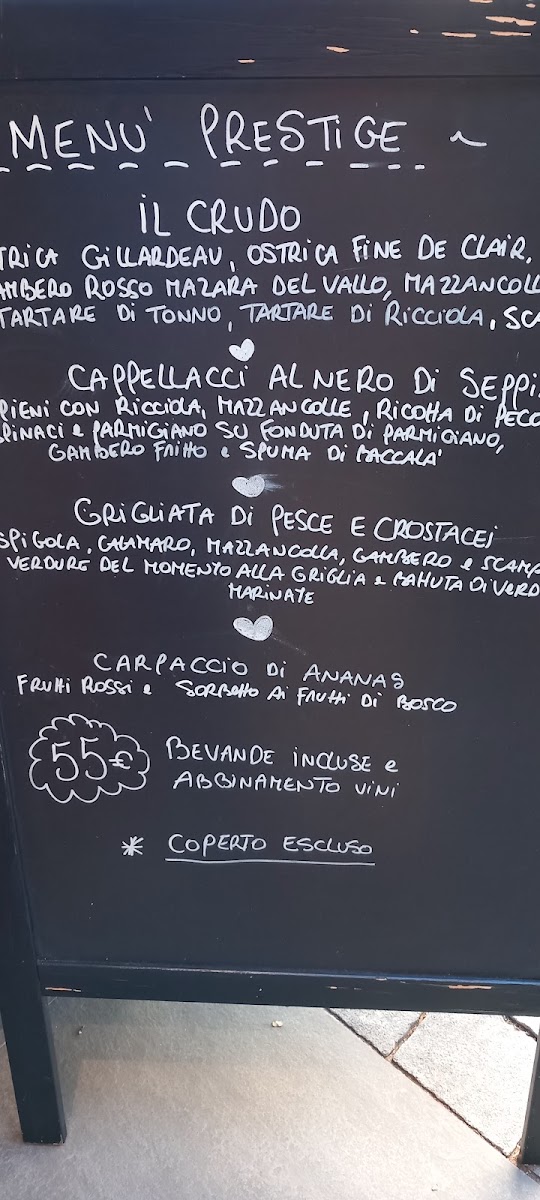 MENU' PRESTIGE ~
IL CRUDO
TRICA GILLARDEAU, OSTRICA FINE DE CLAIR,
AMBERO ROSSO MAZARA DEL VALLO, MAZZANCOLL
TARTARE DI TONNO, TARTARE DI RICCIOLA, SCA
CAPPELLACCI AL NERO DI SEPPI
PIENI CON RICCIOLA, MAZZANCOLLE, RICOTTA DI PECO
PINACI e PARMIGIANO SU FONDUTA DI PARMIGIANO,
GAMBERO FRITTO e SPUMA DI BACCALA'
GRIGLIATA DI PESCE E CROSTACEI
SPIGOLA, CALAMARO, MAZZANCOLLA, GAMBERO e SCAMP
VERDURE DEL MOMENTO ALLA GRIGLIA e BATTUTA DI VERD
MARINATE
CARPACCIO DI ANANAS
FRUTTI ROSSI e SORBETTO AI FRUTTI DI BOSCO
55€ BEVANDE INCLUSE e
ABBINAMENTO VINI
* COPERTO ESCLUSO